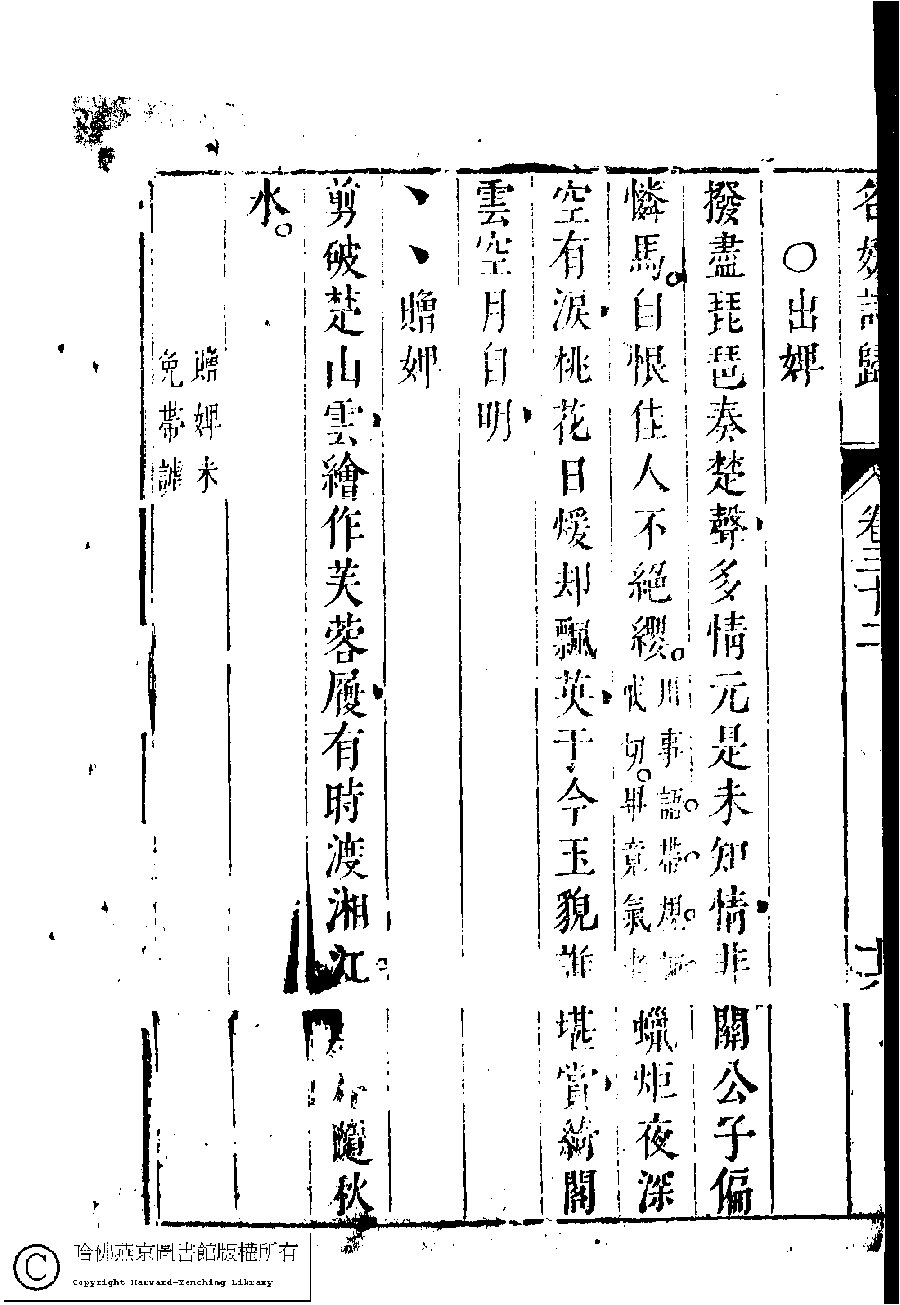 名媛詩歸 卷三十二
○出婢
撥盡琵琶奏楚聲多情元是未知情非關公子偏
憐馬自恨佳人不絕纓 用事語帶 切畢竟氣 蠟炬夜深
空有淚桃花日煖却飄英于今玉貌誰堪賞綺閣
雲空月自明
丶丶贈婢
剪破楚山雲繪作芙蓉履有時渡湘江 隨秋
水
贈婢未
免帶謔
哈佛燕京圖書館版權所有
Copyright Harvard-Yenching Library